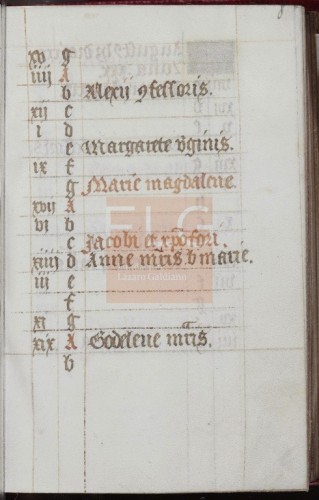 xv g
iiij A
b Alexii ꝯfessoris.
xij c
i d
e Margarete v̾ginis.
ix f
g Marie magdalene.
xvij A
vi b
c Jacobi et xp̄ofori.
xiiij d Anne mr̄is b marie.
iij e
f
xi g
xix A Godeleue mr̄is.
b
FLG
Lázaro Galdiano